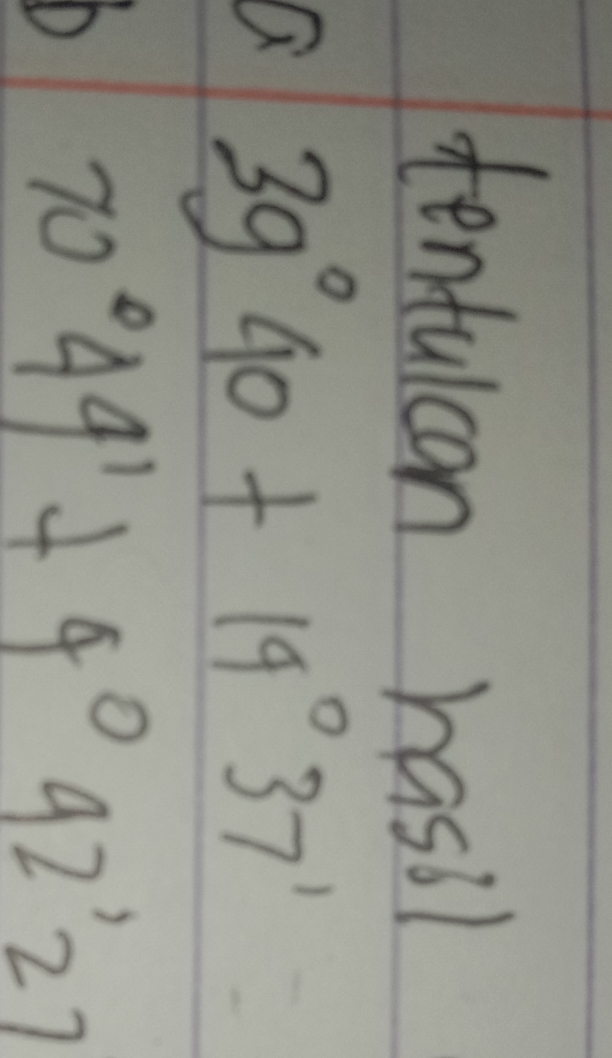 tentukan hasil
a 39° 40 + 19° 37' =
b 70° 44' + 9° 42' 27